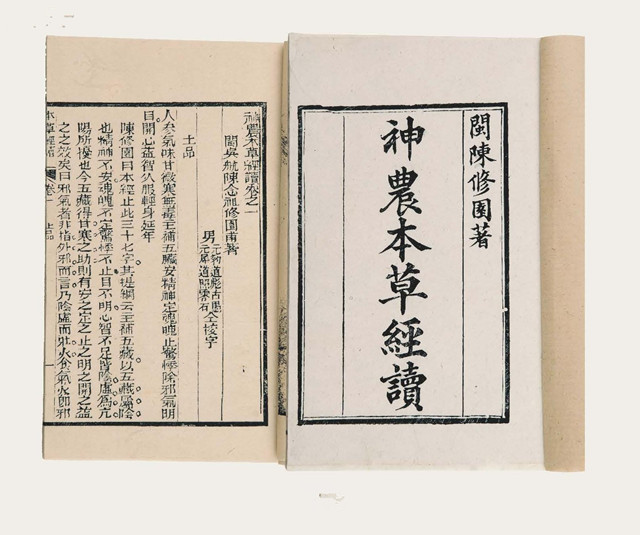 閩陳修園著
神農本草經讀
神農本草經讀卷之一
閩吳航陳念祖修園甫著
男元豹道彪古愚
元犀道照靈石仝校字
上品
人參氣味甘微寒無毒主補五臟安精神定魂魄止驚悸除邪氣明
目開心益智久服輕身延年
陳修園曰本經止此三十七字其提綱云主補五藏以五藏屬陰
也精神不安魂魄不定驚悸不止目不明心智不足皆陰虛為亢
陽所擾也今五藏得甘寒之助則有安之定之止之明之開之益
之之效矣曰邪氣者非指外邪而言乃陰虛而壯火食氣火即邪
本草經讀 卷一 上品 一